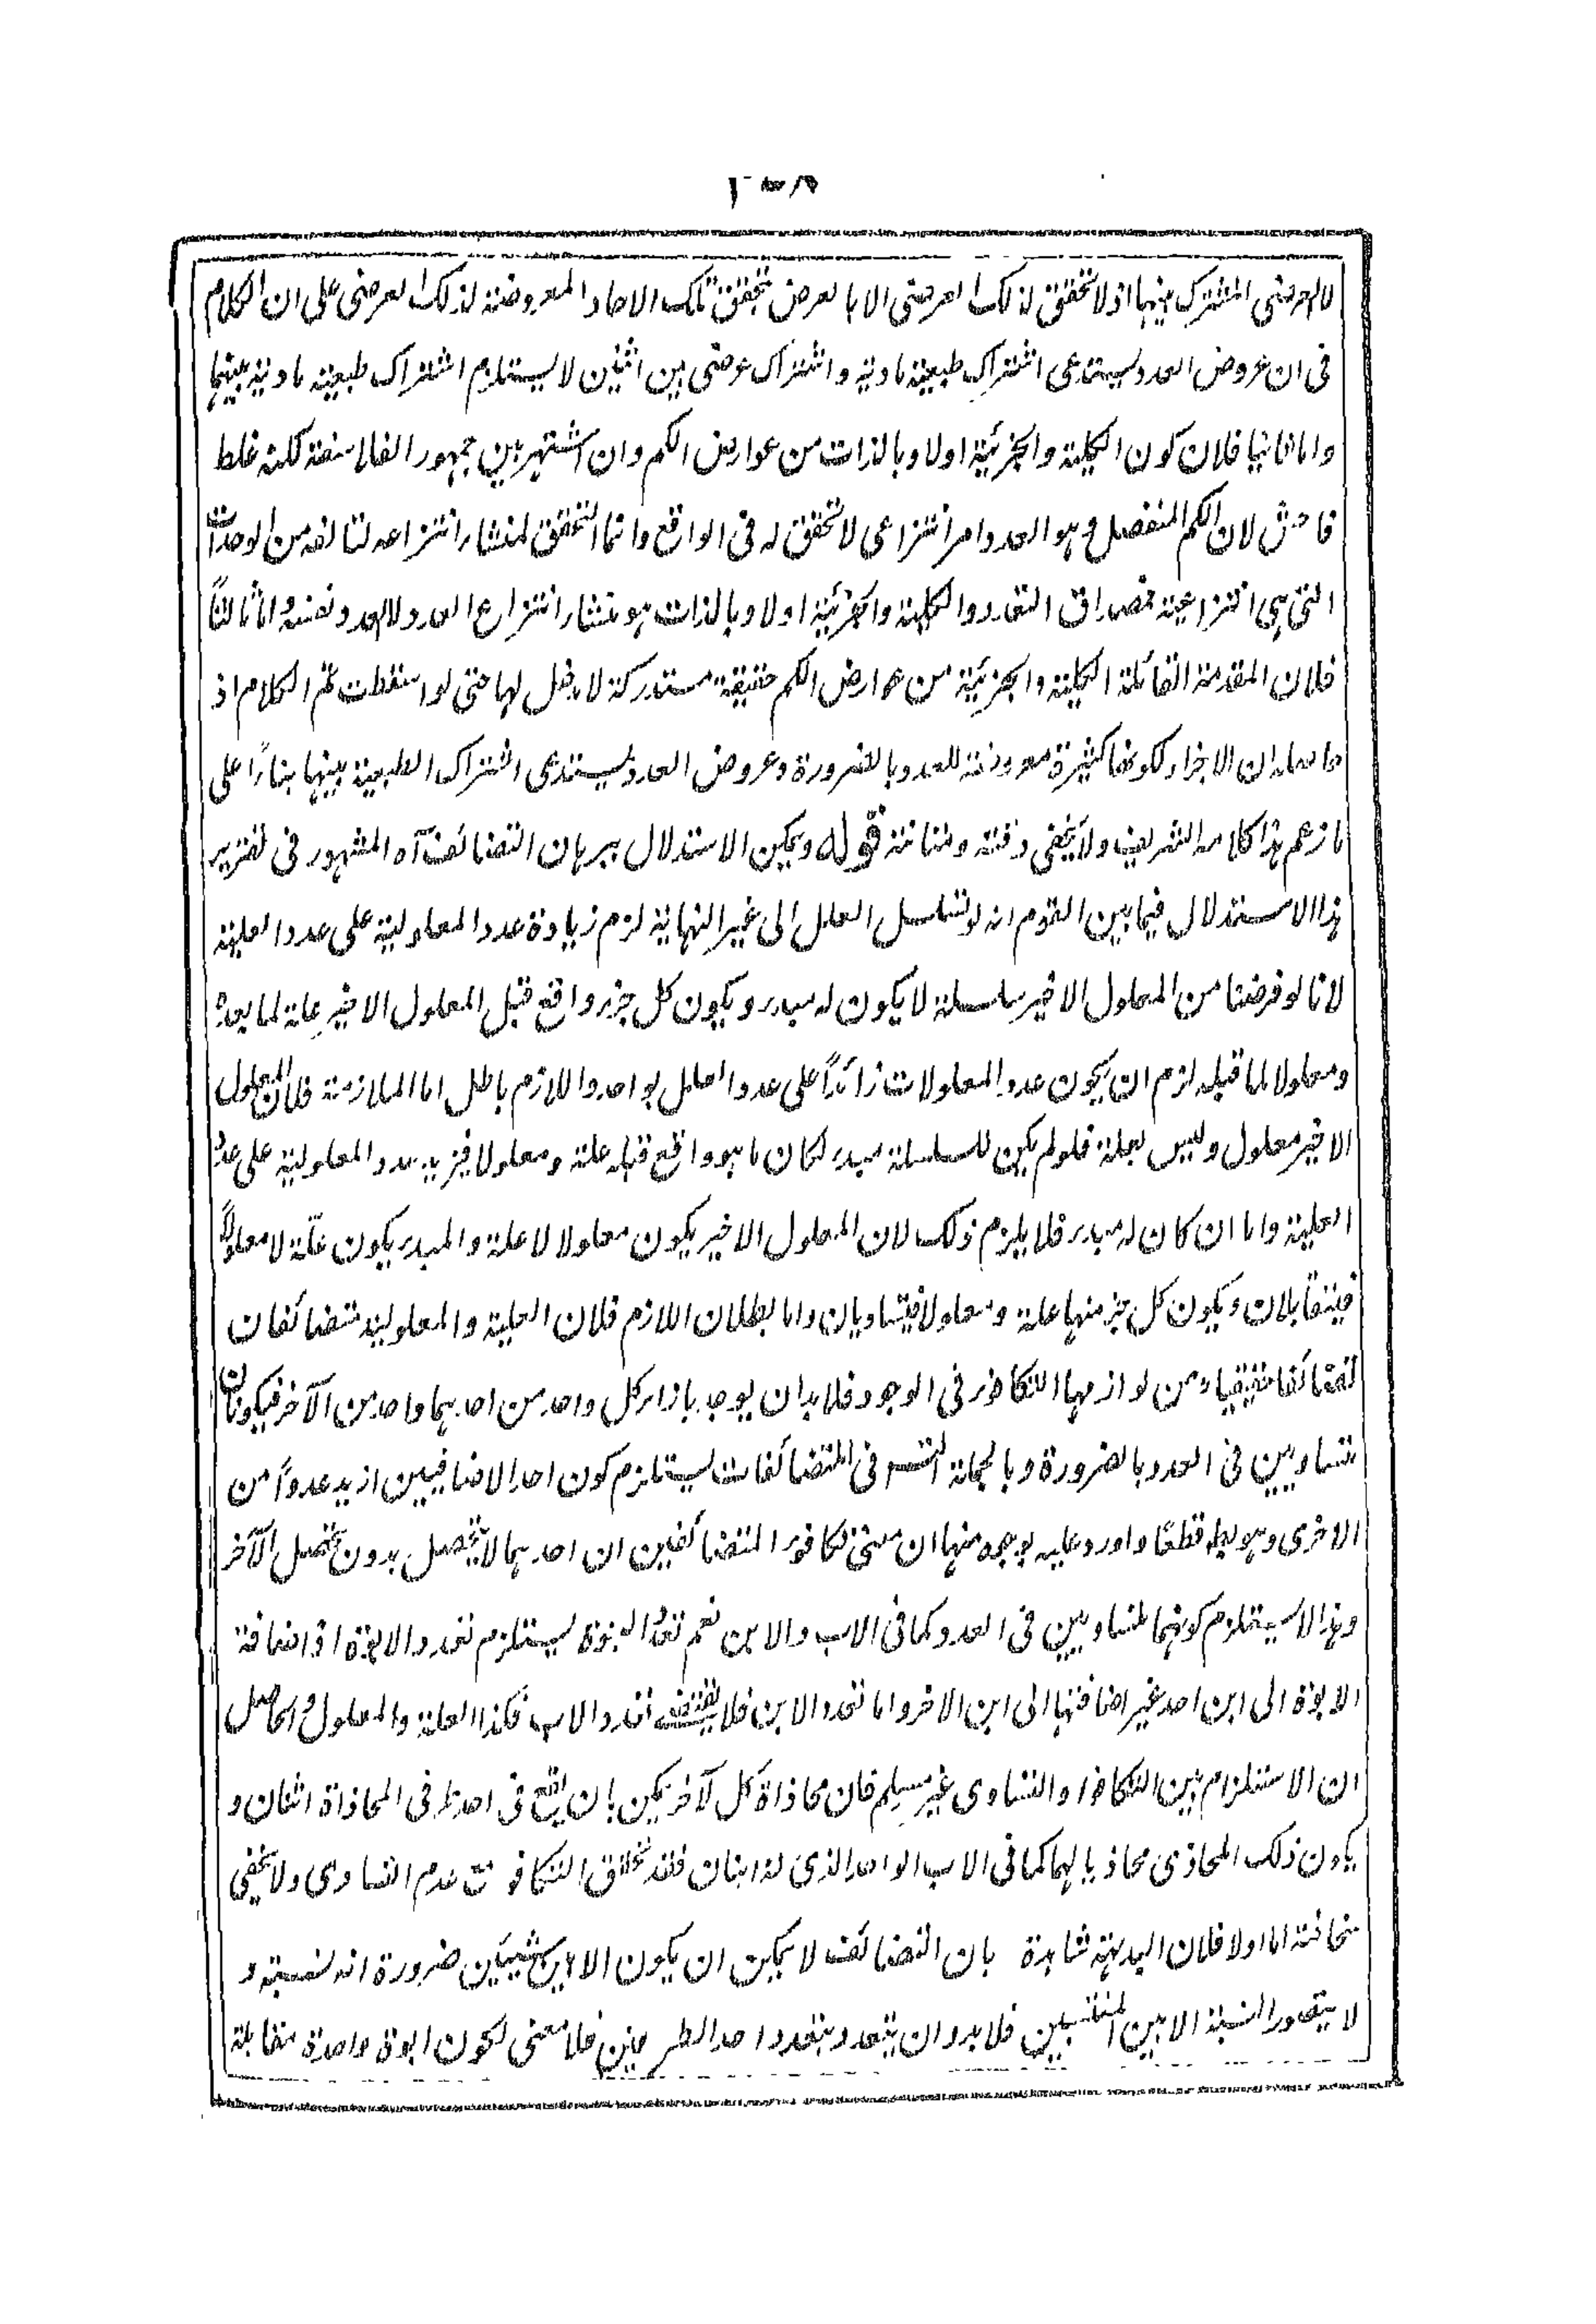 لا لعرضي المشترك بينها اذ لا تحقق لذلك العرضي الا بالعرض بتحقق تلك الاحاد المعروضة لذلك العرضي على ان الكلام
في ان عروض العدد يستدعي اشتراك طبيعة مادية واشتراك عرضي بين اثنين لا يستلزم اشتراك طبيعة مادية بينهما
واما ثانيا فلان كون الكلية والجزئية اولا وبالذات من عوارض الكم وان اشتهر بين جمهور الفلاسفة لكنه غلط
فاحش لان الكم المنفصل وهو العدد امر انتزاعي لا تحقق له في الواقع وانما التحقق لمنشاء انتزاعه لتالفه من الوحدات
التي هي انتزاعية فمصداق التعدد والكلية والجزئية اولا وبالذات هو منشاء انتزاع العدد لا العدد نفسه واما ثالثاً
فلان المقدمة القائلة الكلية والجزئية من عوارض الكم حقيقة مستدركة لا دخل لها حتى لو اسقطت تم الكلام اذ
حاصله ان الاجزاء لكونها كثيرة معروضة للعدد بالضرورة وعروض العدد يستدعي اشتراك الطبيعة بينها بناءً على
ما زعم هذا كلامه الشريف ولا يخفى دقته ومتانته قوله ويمكن الاستدلال ببرهان التضائف آه المشهور في تقرير
هذا الاستدلال فيما بين القوم انه لو تسلسل العلل الى غير النهاية لزم زيادة عدد المعلولية على عدد العلية
لانا لو فرضنا من المعلول الاخير سلسلة لا يكون له مبدء ويكون كل جزء واقع قبل المعلول الاخير علة لما بعده
ومعلولا لما قبله لزم ان يكون عدد المعلولات زائداً على عدد العلل بواحد واللازم باطل اما الملازمة فلان المعلول
الاخير معلول وليس بعلة فلو لم يكن للسلسلة مبدء لكان ما هو واقع قبله علة ومعلولا فيزيد عدد المعلولية على عدد
العلية واما ان كان له مبدء فلا يلزم ذلك لان المعلول الاخير يكون معلولا لا علة والمبدء يكون علّة لا معلولاً
فيتقابلان ويكون كل جزء منها علة ومعلولا فيتساويان واما بطلان اللازم فلان العلية والمعلولية متضائفان
تضائفا حقيقيا ومن لوازمها التكافؤ في الوجود فلا بد ان يوجد بازاء كل واحد من احدهما واحد من الآخر فيكونان
متساويين في العدد بالضرورة وبالجملة التسـ في المتضائفات يستلزم كون احد الاضافيين ازيد عدداً من
الاخرى وهو بط قطعًا واورد عليه بوجوه منها ان معنى تكافوء المتضائفين ان احدهما لا يتحصل بدون تحصل الآخر
وهذا لا يستلزم كونهما متساويين في العدد كما في الاب والابن نعم تعدد البنوة يستلزم تعدد الابوة اذ اضافة
الابوة الى ابن احد غير اضافتها الى ابن الاخر واما تعدد الابن فلا يقتضي تعدد الاب فكذا العلة والمعلول والحاصل
ان الاستلزام بين التكافؤ والتساوى غير مسلم فان محاذاة كل لآخر يمكن بان يقع في احد طرفي المحاذاة اثنان و
يكون ذلك المحاذي محاذيا لهما كما في الاب الواحد الذي له ابنان فقد تحقق التكافؤ مع عدم التساوى ولا يخفى
سخافته اما اولا فلان البديهة شاهدة بان التضائف لا يمكن ان يكون الا بين شيئين ضرورة انه نسبة و
لا يتصور النسبة الا بين المنتسبين فلا بد وان يتعدد بتعدد احد الطرفين فلا معنى لكون ابوة واحدة مقابلة